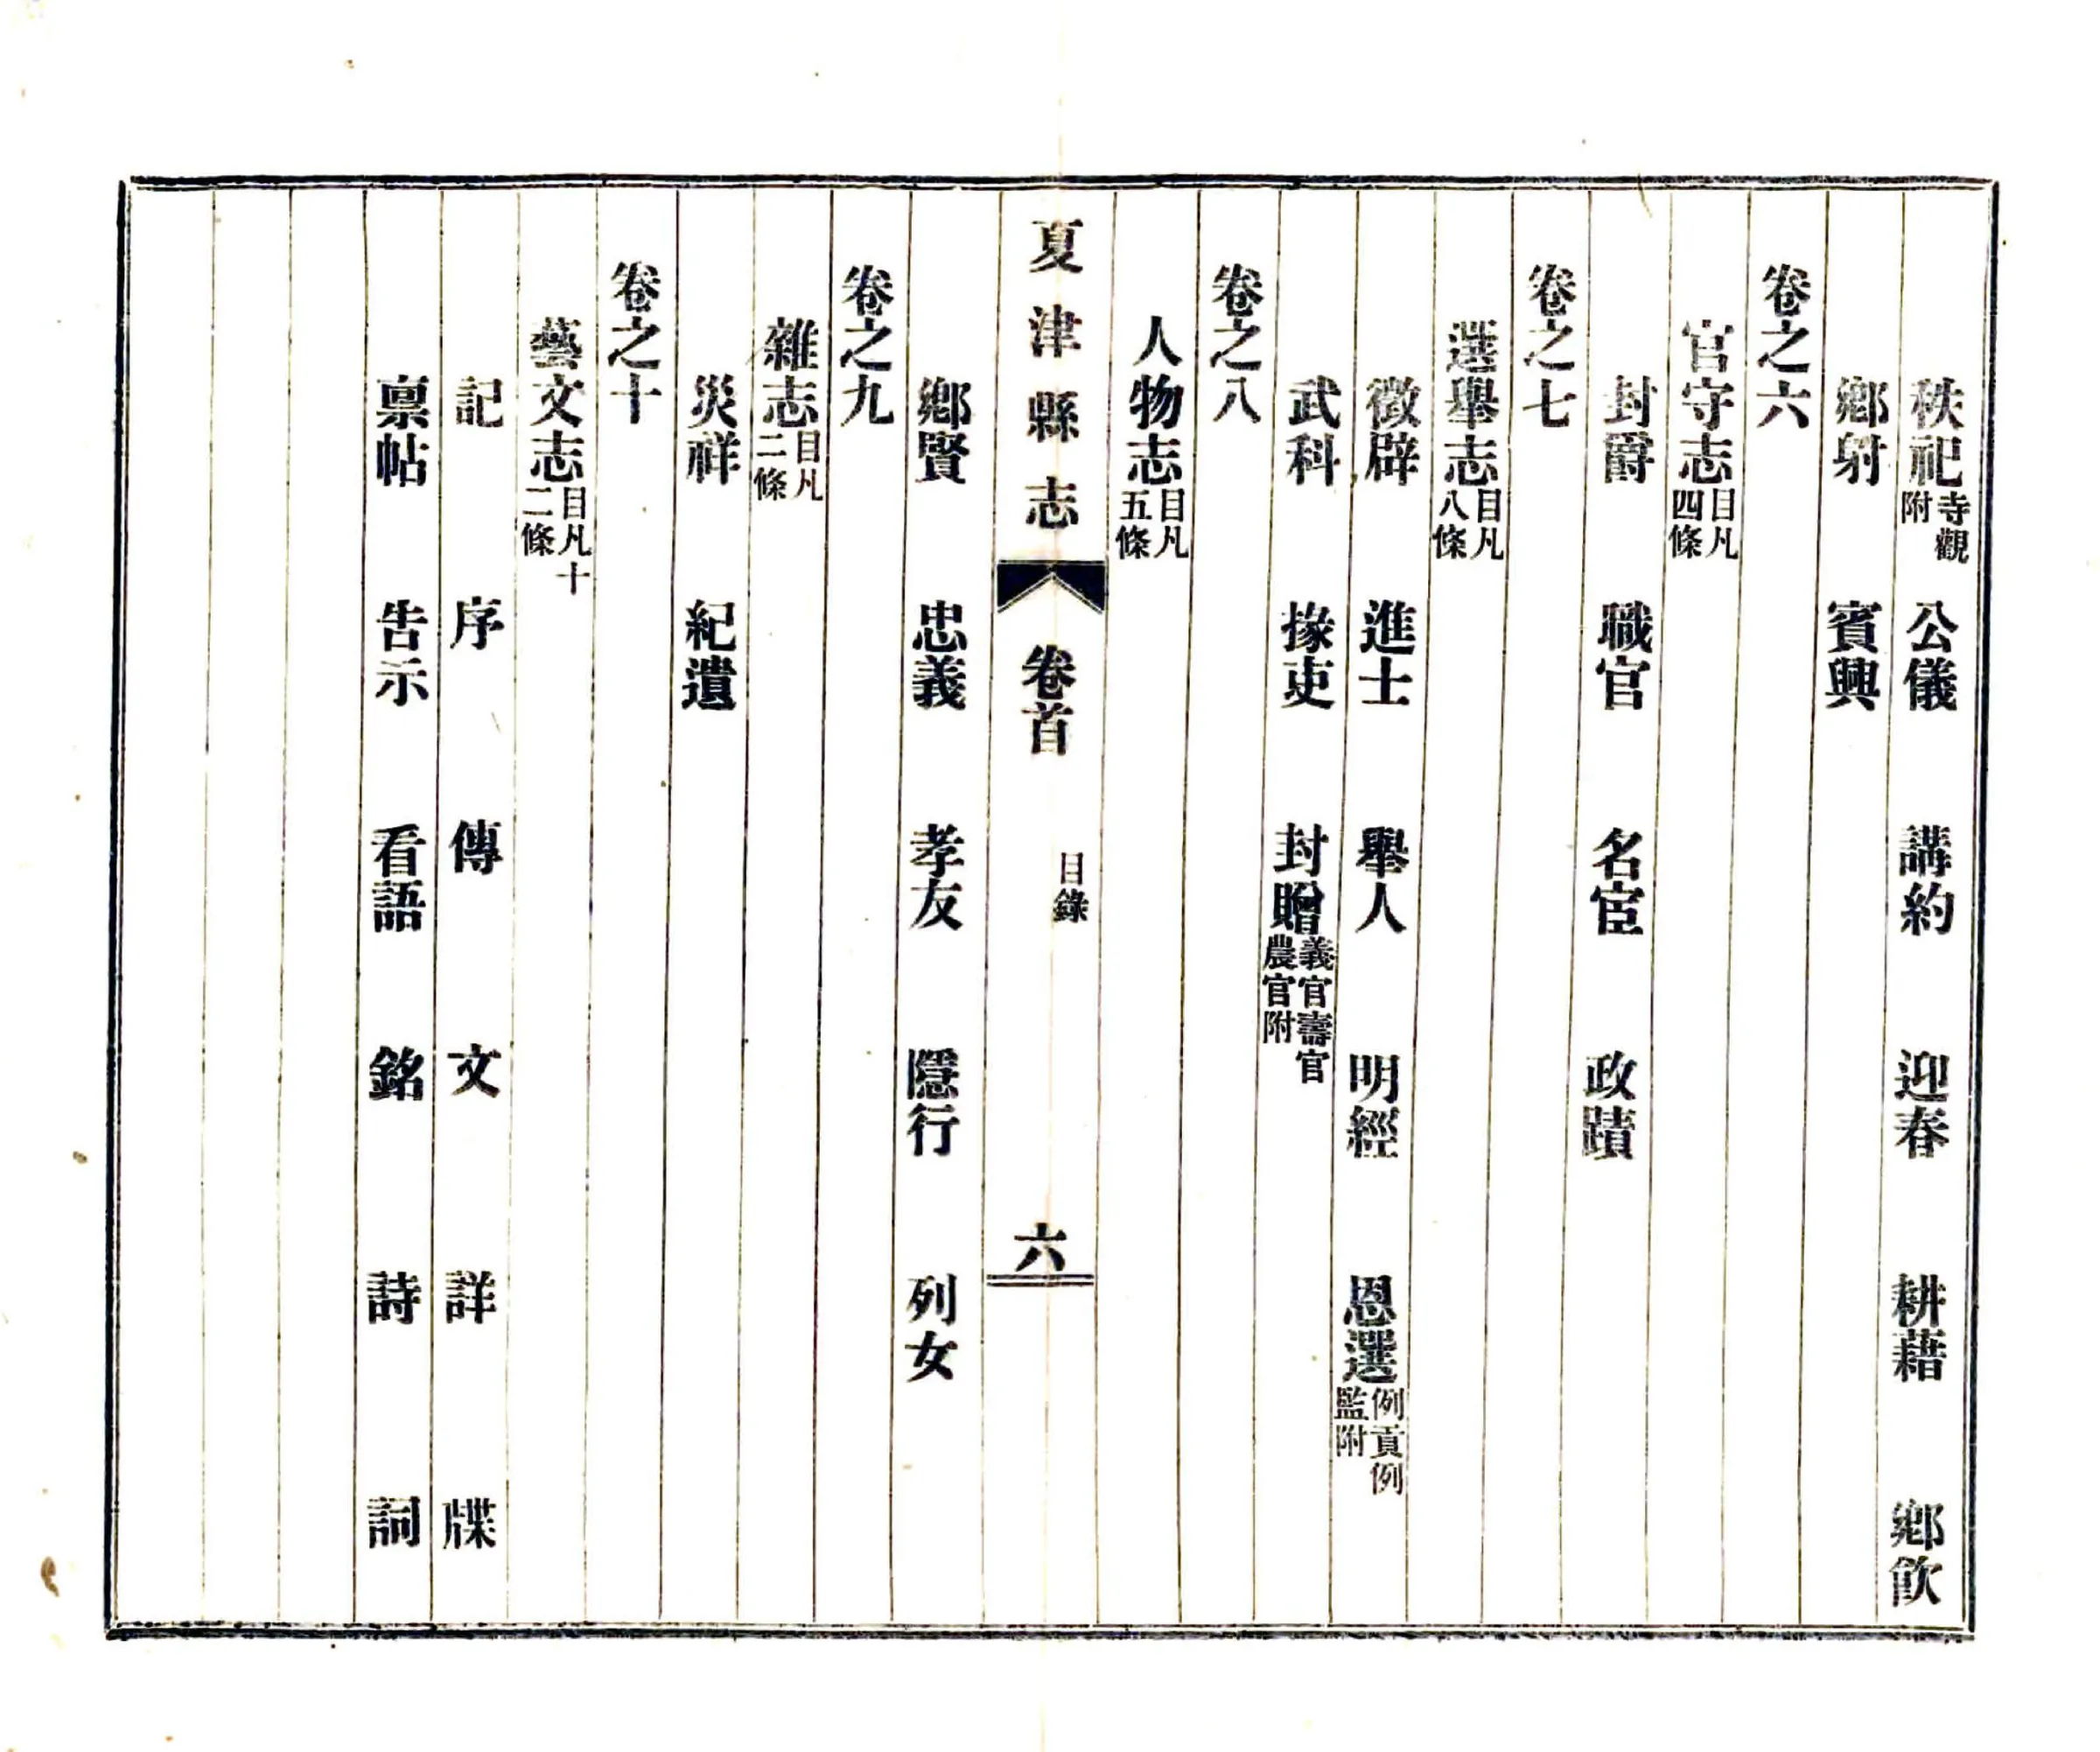 秩祀寺觀附　公儀　講約　迎春　耕藉　鄉飲
鄉射　賓興
卷之六
官守志目凡四條
封爵　職官　名宦　政蹟
卷之七
選舉志目凡八條
徵辟　進士　舉人　明經　恩選例貢例監附
武科　掾吏　封贈義官壽官農官附
卷之八
人物志目凡五條
夏津縣志　卷首　目錄　六
鄉賢　忠義　孝友　隱行　列女
卷之九
雜志目凡二條
災祥　紀遺
卷之十
藝文志目凡十二條
記　序　傳　文　詳　牒
稟帖　告示　看語　銘　詩　詞